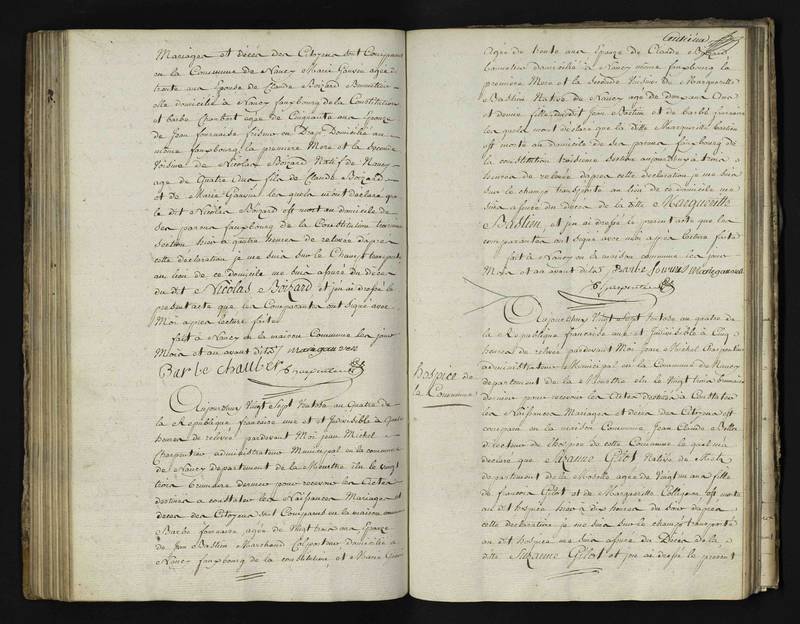 Mariages et décés des Citoyens sont Comparus
en la Commune de Nancy Marie Gauvin agée de
trente ans Epouse de Claude Boizard
domicilié à Nancy fauxbourg de la Constitution
et barbe Chambert agée de Cinquante ans Epouse
de Jean fournaise Domicilié au
même fauxbourg la premiere Mere et la seconde
Voisine de Nicolas Boizard Natif de Nancy
age de Quatre ans fils de Claude Boizard
et de Marie Gauvin les quels m'ont déclaré que
le dit Nicolas Boizard est mort au domicile de
ses parens fauxbourg de la Constitution troisieme
section hier à quatre heures de relevée d'apres
cette déclaration je me suis sur le Champ transporté
au lieu de ce domicile me suis assuré du décés
du dit Nicolas Boizard et j'en ai dressé le
présent acte que les Comparantes ont signé avec
Moi apres lecture faite
fait à Nancy en la maison Commune les jour
Mois et an avant dits marie gauven
Barbe chauber Charpentier
Aujourdhui Vingt Sept Ventose au Quatre de
la République francaise une et Indivisible à Quatre
heures de relevée pardevant Moi jean Michel
Charpentier administrateur Municipal en la commune
de Nancy departement de la Meurthe élu le vingt
trois brumaire dernier pour recevoir les Actes
destinés à constater les Naissances Mariages et
décés des Citoyens sont Comparus en la maison
Barbe fournaise agée de Vingt trois ans Epouse
de Jean Bastien Marchand Colporteur domicilié à
Nancy fauxbourg de la constitution, et Marie Gauvin
agée de trente ans Epouse de Claude Boizard
domicilié à Nancy même fauxbourg la
premiere Mere et la seconde Voisine de Marguerite
Bastien Native de Nancy age de deux ans
et demie fille dudit Jean Bastien et de barbe fournaise
les quels m'ont déclaré que la ditte Marguerite Bastien
est morte au domicile de ses parens fauxbourg de
la constitution troisieme section aujourdhuy à trois
heures de relevée d'apres cette déclaration je me suis
sur le champ transporté au lieu de ce domicile me
suis assuré du décés de la ditte Margueritte
Bastien, et j'en ai dressé le présent acte que les
comparantes ont signé avec moi après lecture faite
fait à Nancy en la maison commune les jour
Mois et an avant dits Barbe Marie gauven
Charpentier
Aujourdhuy Vingt Sept Ventose au quatre de
la République francaise une et Indivisible à Cinq
heures de relevée pardevant Moi Jean Michel Charpentier
administrateur Municipal en la Commune de Nancy
departement de la Meurthe élu le Vingt trois brumaire
dernier pour recevoir les Actes destinés à Constater
les Naissances Mariages et décés des Citoyens est
comparu en la maison Commune Jean Claude
directeur de l'hospice de cette Commune le quel m'a
déclaré que Suzanne Gilot Native de Metz
departement de la Moselle agée de Vingt un ans fille
de francois Gilot et de Marguerite est morte
au dit hospice hier à dix heures du soir d'apres
cette déclaration je me suis sur le champ transporté
au dit hospice me suis assuré du Décés de la
ditte Suzanne Gilot et j'en ai dressé le présent
hospice de
la Commune